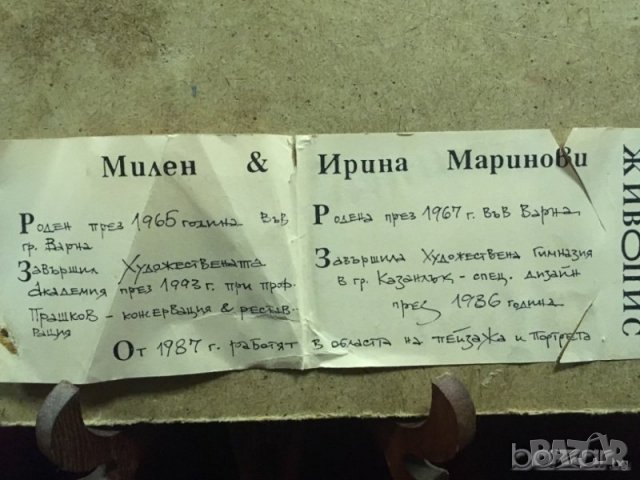 Милен & Ирина Маринови
ЖИВОПИС
Роден през 1965 година във
гр. Варна
Завършил Художествената
Академия през 1993 г. при проф.
Прашков - консервация & рестав-
рация
Родена през 1967 г. във Варна
Завършила Художествена Гимназия
в гр. Казанлък - спец. дизайн
през 1986 година
От 1987 г. работят в областта на пейзажа и портрета
BAZAR
bazar.bg